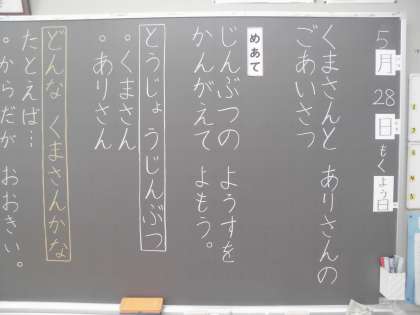 5月28日もくよう日
くまさんと ありさんの
ごあいさつ
めあて
じんぶつの ようすを
かんがえて よもう。
とうじょうじんぶつ
。くまさん
。ありさん
どんな くまさんかな
たとえば…
。からだが おおきい。